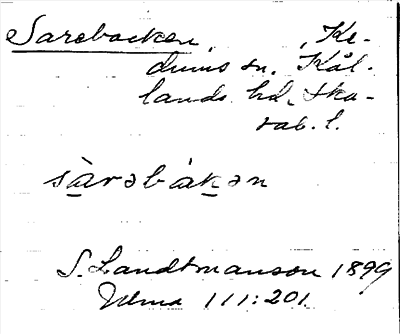 Sarebacken, Ke-
dums sn. Kål-
lands hd, Ska-
rab. l.
sàrəbàkən
S. Landtmanson 1899
111:201.